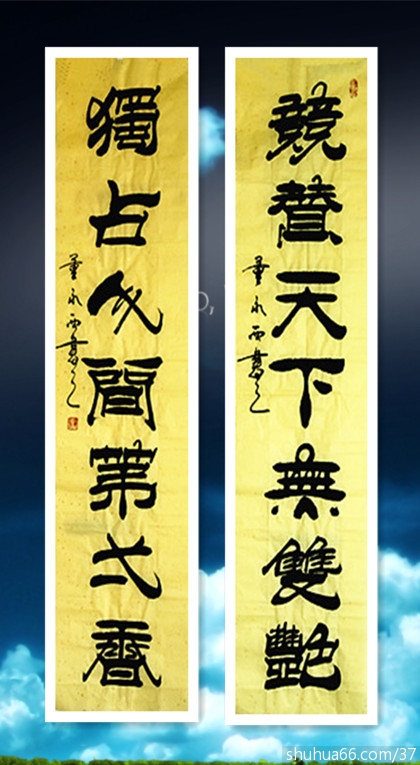 競賛天下無雙艷
董永西書之
獨占人間苐弌香
董永西書之
shuhua66.com/37